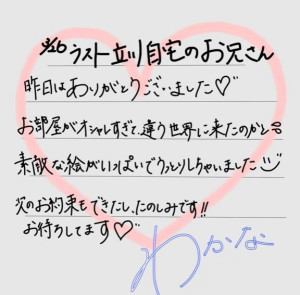 3/26 ラスト立川自宅のお兄さん
昨日はありがとうございました♡
お部屋がオシャレすぎて、違う世界に来たのかと
素敵な絵がいっぱいでうっとりしちゃいました
次のお約束もできたし、たのしみです!!
お待ちしてます♡
わかな